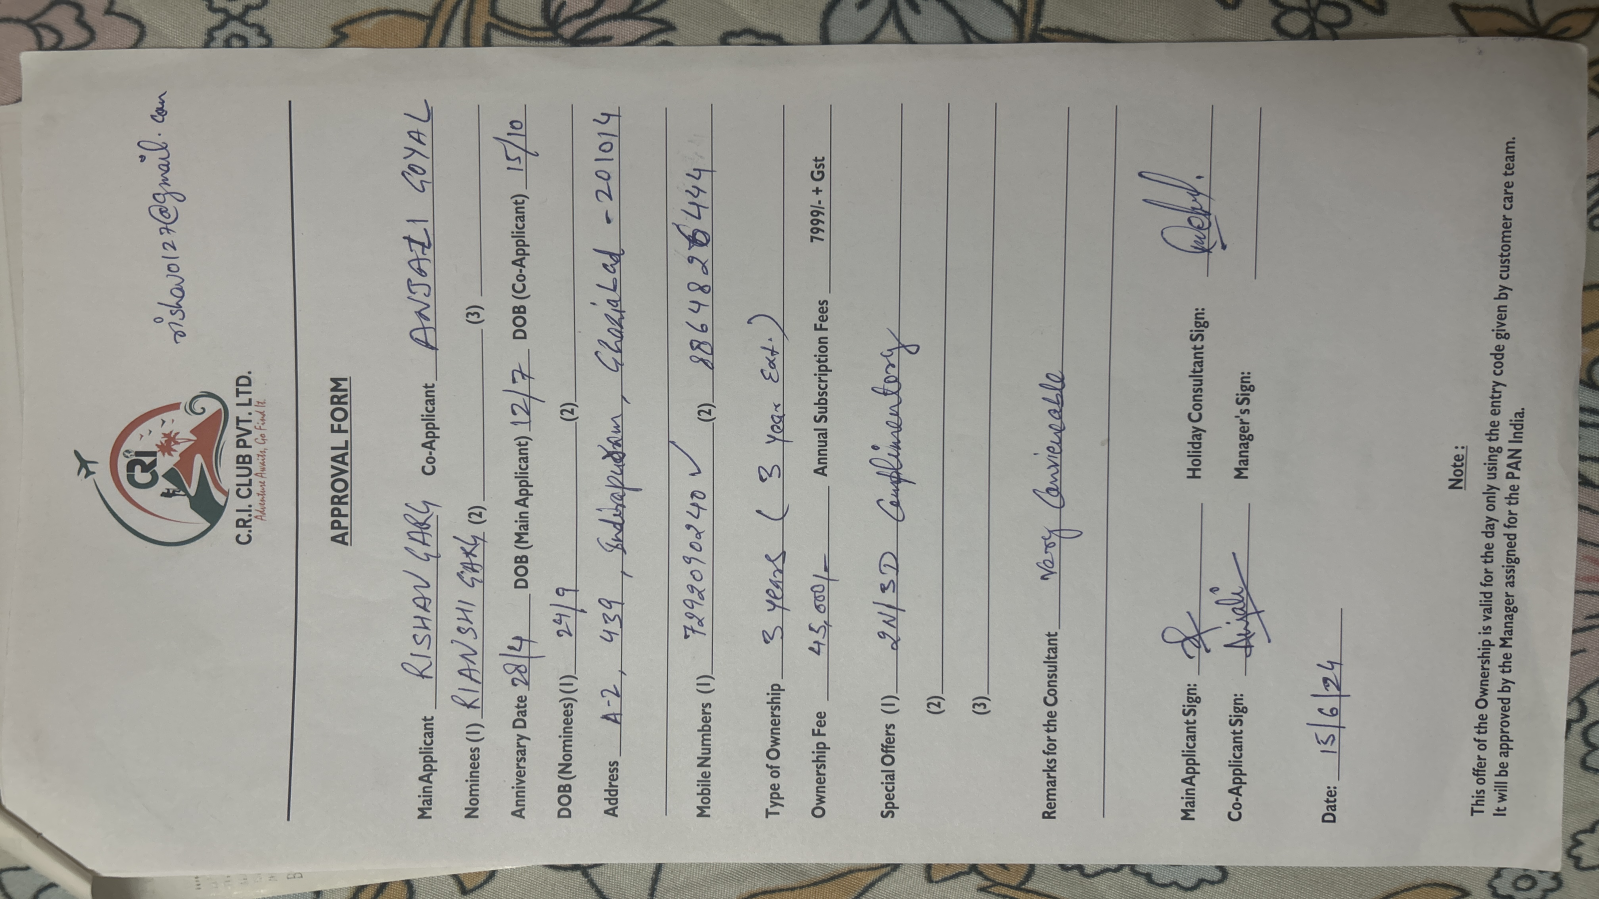 rishav0127@gmail.com
CRI
C.R.I. CLUB PVT. LTD.
Adventure Awaits, Go Find It.
APPROVAL FORM
Main Applicant RISHAV GARG Co-Applicant ANJALI GOYAL
Nominees (1) RIANSHI GARG (2) (3)
Anniversary Date 28/4 DOB (Main Applicant) 12/7 DOB (Co-Applicant) 15/10
DOB (Nominees) (1) 24/9 (2)
Address A-2, 439, Indirapuram, Ghaziabad - 201014
Mobile Numbers (1) 7292090240 ✓ (2) 8864826444
Type of Ownership 3 years ( 3 year Ext.)
Ownership Fee 45,000/- Annual Subscription Fees 7999/- + Gst
Special Offers (1) 2N/3D Complimentory
(2)
(3)
Remarks for the Consultant Very Convieneable
Main Applicant Sign: Holiday Consultant Sign:
Co-Applicant Sign: Anjali Manager's Sign:
Date: 15/6/24
Note :
This offer of the Ownership is valid for the day only using the entry code given by customer care team.
It will be approved by the Manager assigned for the PAN India.